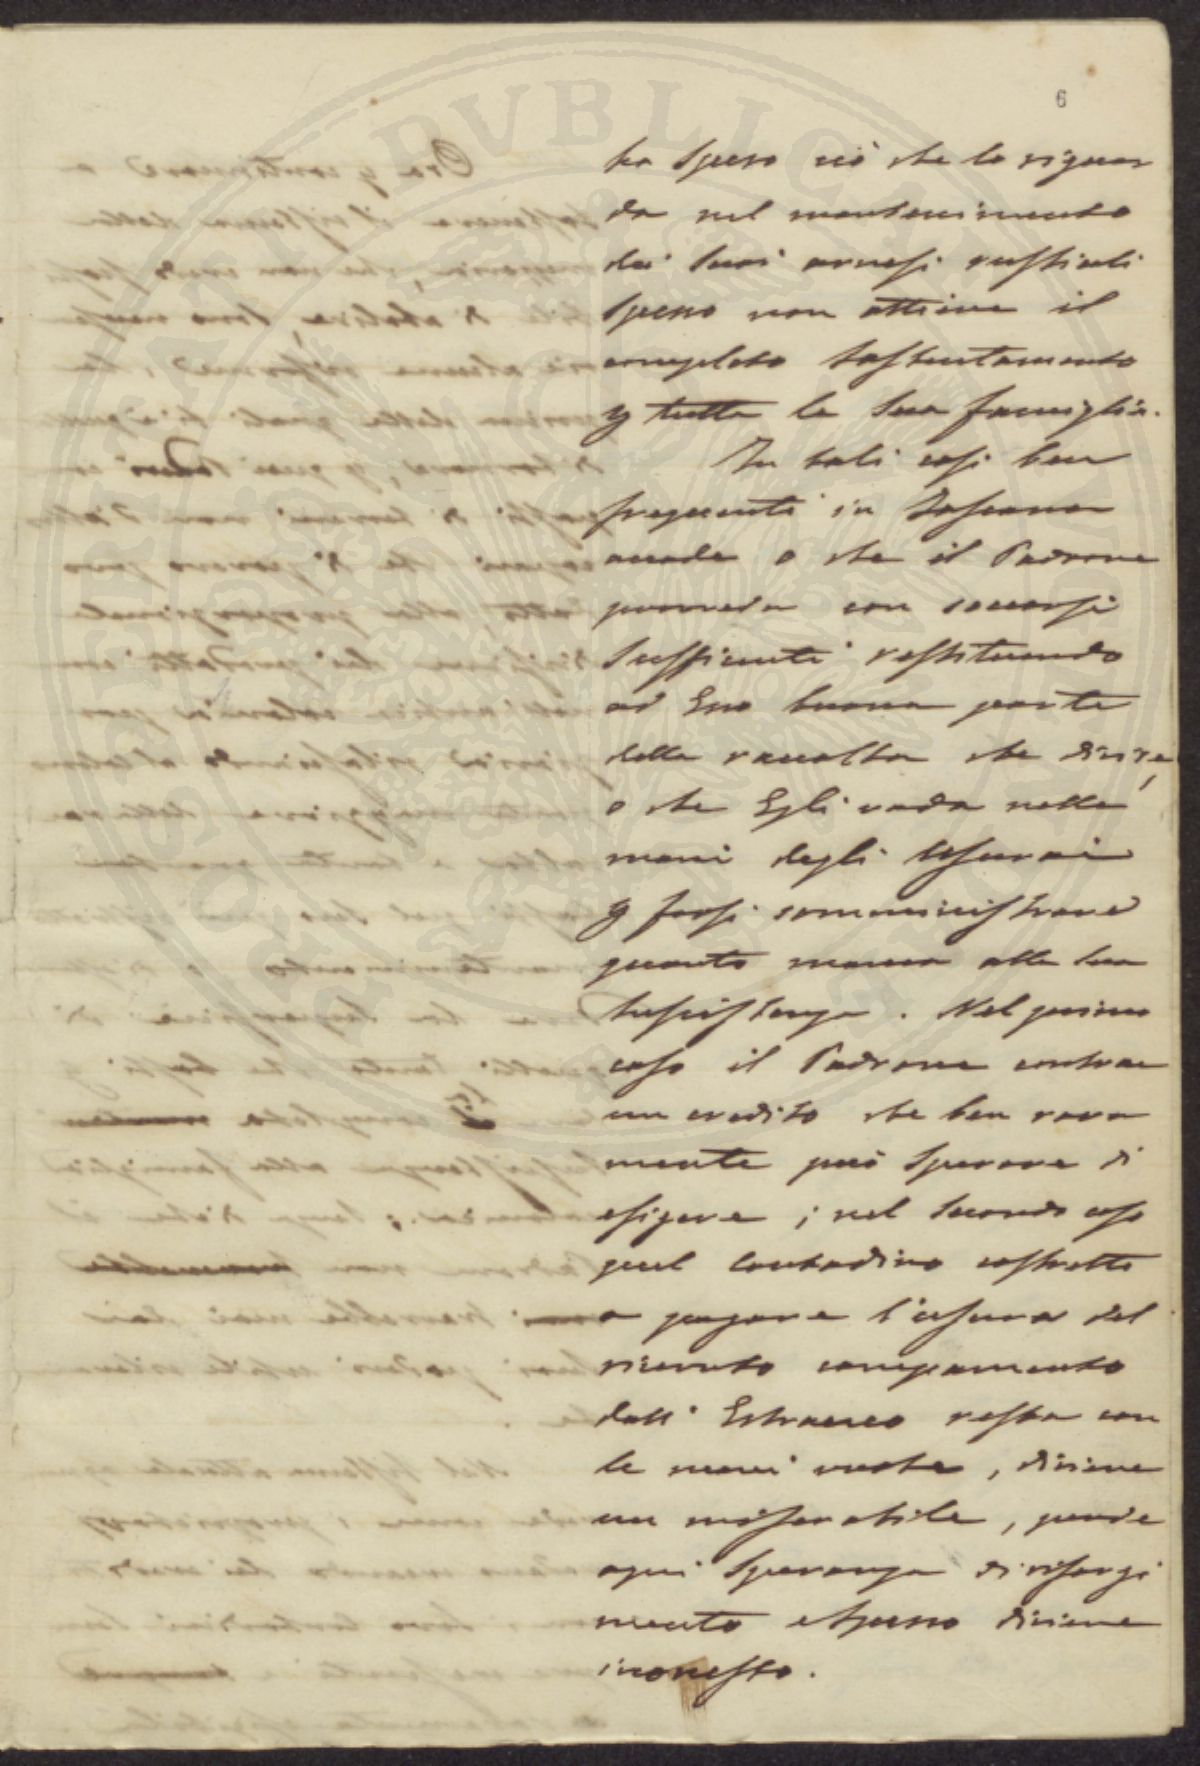 6
ha speso ciò che lo riguar
da nel mantenimento
dei suoi arnesi rusticali
spesso non ottiene il
completo sostentamento
p tutta la sua famiglia.
In tali casi ben
frequenti in Toscana
accade o che il Padrone
provveda con soccorsi
sufficienti restituendo
ad Esso buona parte
della raccolta che divise,
o che Egli vada nelle
mani degli Usurai
p farsi somministrare
quanto manca alla sua
sussistenza. Nel primo
caso il Padrone contrae
un credito che ben rara
mente può sperare di
esigere; nel secondo caso
quel Contadino costretto
a pagare l'usura del
ricevuto campamento
dall'Estraneo resta con
le mani vuote, diviene
un miserabile, perde
ogni speranza di risorgi
mento e spesso diviene
inonesto.